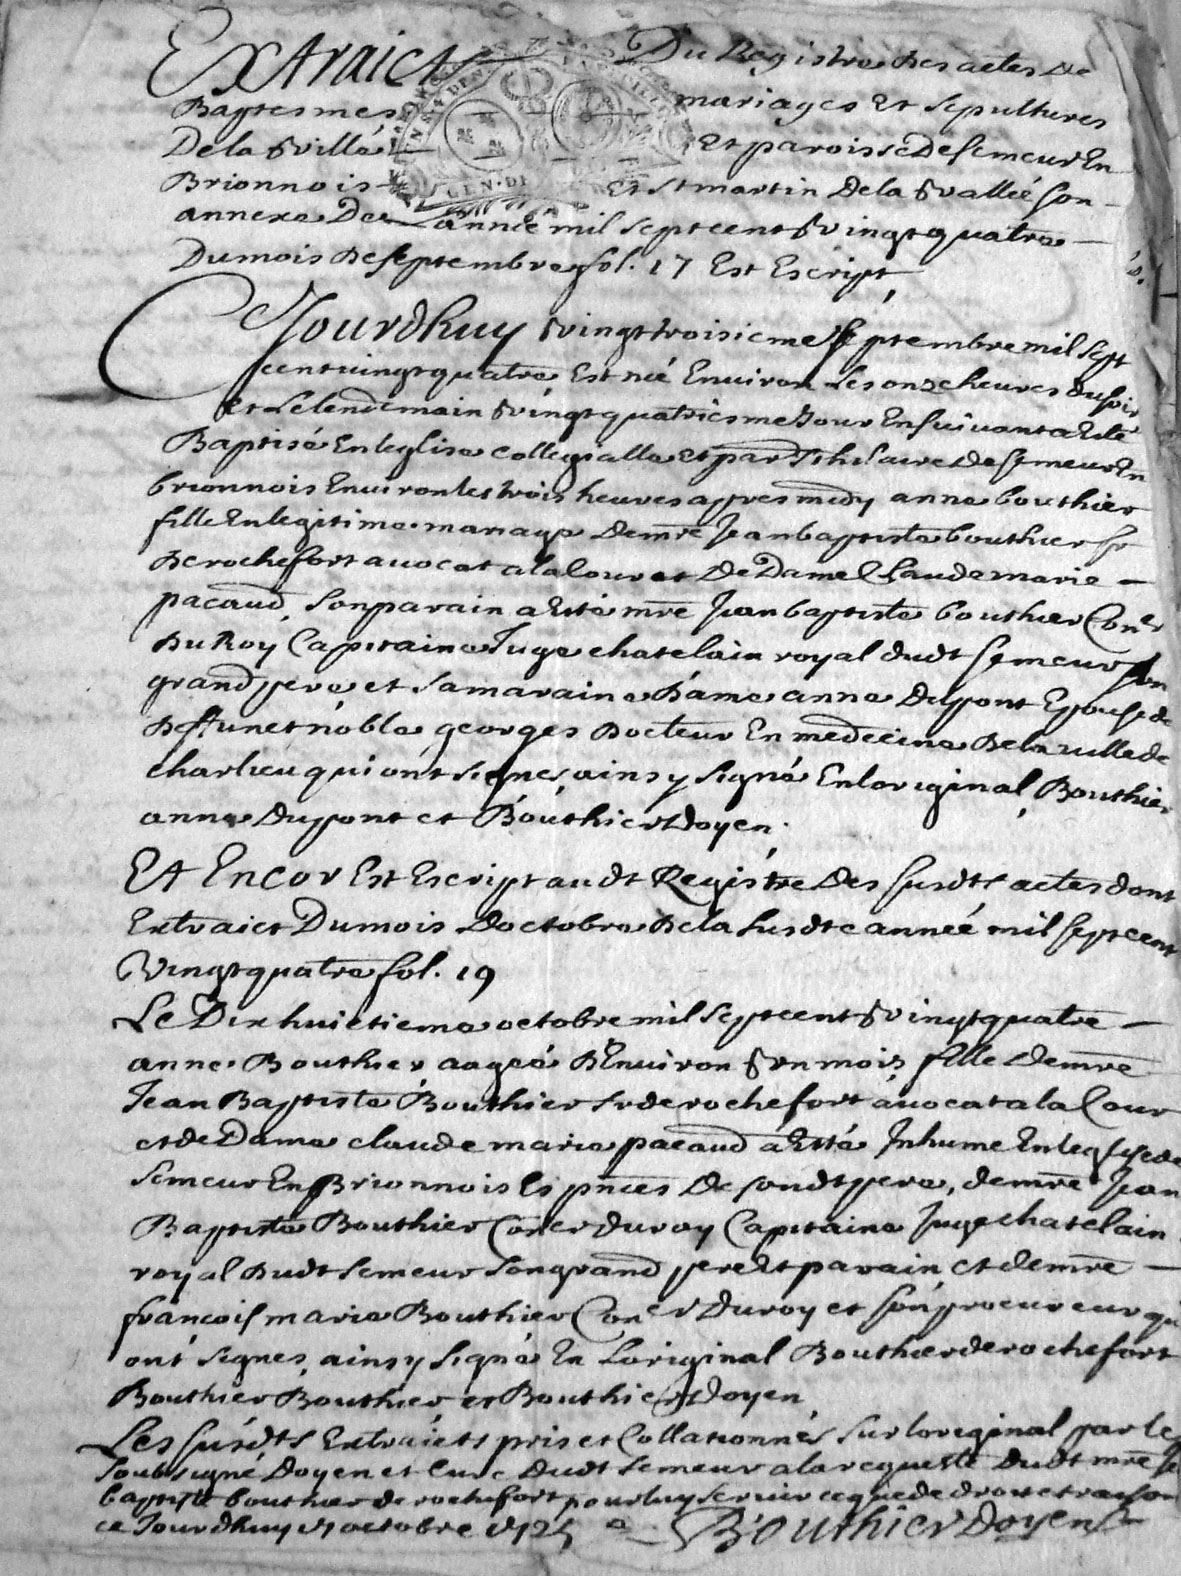 Extraict Du Registre Des actes De
Baptesmes mariages Et sepultures
De la Ville Et paroisse De semeur En
GEN. DE
Brionnois Et St martin De la Vallée son
annexe De Lannée mil sept cent Vingt quatre
Du mois De septembre fol. 17 Est Escript
Cejourdhuy Vingt troisieme septembre mil sept
cent vingt quatre Est née Environ Les onze heures du soir
et Le lendemain Vingt quatriesme Jour Ensuivant a Esté
Baptisé En leglise collegialle et par St hilaire De semeur En
brionnois Environ les trois heures apres midy anne bouthier
fille En legitime mariage De mre Jean baptiste bouthier sr
De rochefort avocat a la Cour et De Dame Claude marie
pacaud, son parain a Esté mre Jean baptiste bouthier Coner
Du Roy Capitaine Juge chatelain royal dudt semeur son
grand pere et sa maraine Dame anne Dupont Epouse de
Deffunct noble georges Docteur En medecine De la ville de
charlieu qui ont signes ainsy signé En loriginal, Bouthier
anne Dupont et Bouthier Doyen.
Et Encor Est Escript audt Registre Des susdts actes dont
Extraict Du mois Doctobre De la susdte année mil sept cent
Vingt quatre fol. 19
Le Dix huictieme octobre mil sept cent Vingt quatre
anne Bouthier aagée DEnviron Un mois fille De mre
Jean Baptiste Bouthier sr de rochefort avocat a la Cour
et de Dame claude marie pacaud a Esté Inhume En leglise de
semeur En Brionnois Es pnces De sondt pere, de mre Jean
Baptiste Bouthier Coner du roy Capitaine Juge chatelain
royal Dudt semeur son grand pere Et parain, et de mre
francois marie Bouthier Coner Du roy et son procureur qui
ont signes, ainsy signé En Loriginal Bouthier de rochefort
Bouthier Bouthier et Bouthier Doyen,
Les susdts Extraicts pris et Collationnés sur loriginal par le
soubsigné Doyen et Curé Dudt semeur a la requeste Dudt mre
baptiste bouthier de rochefort pour luy servir ce que de droit et raison
ce Jourdhuy octobre Bouthier Doyen